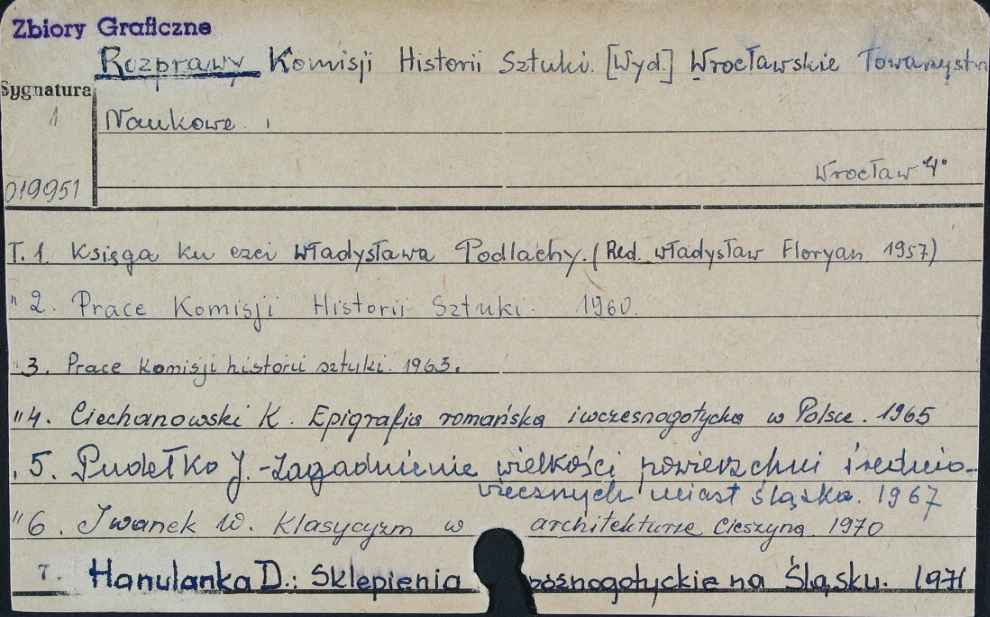 Zbiory Graficzne
Rozprawy Komisji Historii Sztuki. [Wyd.] Wrocławskie Towarzystw
Sygnatura
1
Naukowe.
Wrocław 4°
019951
T. 1. Księga ku czci Władysława Podlachy. (Red. Władysław Floryan 1957)
" 2. Prace Komisji Historii Sztuki. 1960.
" 3. Prace Komisji historii sztuki. 1963.
" 4. Ciechanowski K. Epigrafia romańska i wczesnogotycka w Polsce. 1965
" 5. Pudełko J. - Zagadnienie wielkości powierzchni średnio-
wiecznych miast śląska. 1967
" 6. Iwanek W. Klasycyzm w architekturze Cieszyna 1970
7. Hanulanka D.: Sklepienia późnogotyckie na Śląsku. 1971